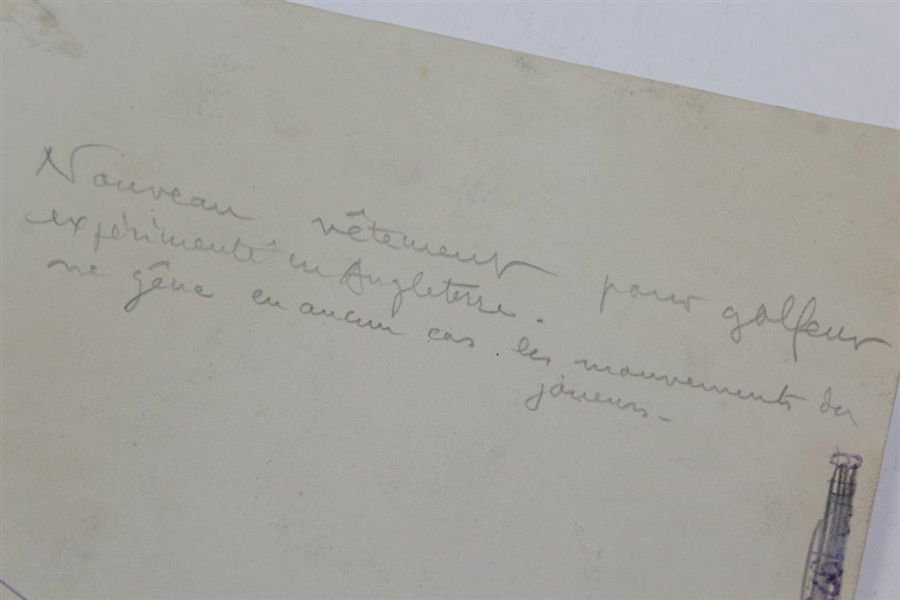 Nouveau vêtement pour golfeur
expérimenté en Angleterre.
ne gêne en aucun cas les mouvements du
joueurs -